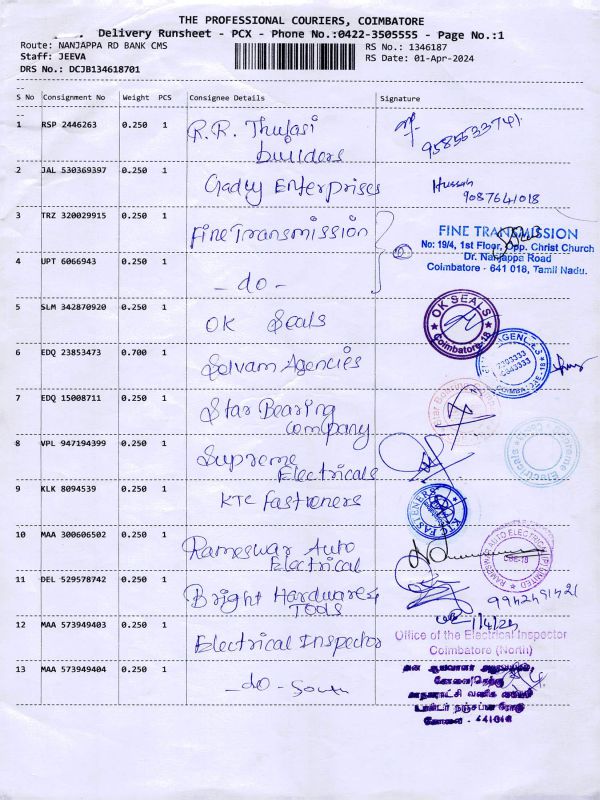 THE PROFESSIONAL COURIERS, COIMBATORE
Delivery Runsheet - PCX - Phone No.:0422-3505555 - Page No.:1
Route: NANJAPPA RD BANK CMS
RS No.: 1346187
Staff: JEEVA
RS Date: 01-Apr-2024
DRS No.: DCJB134618701
S No Consignment No Weight PCS Consignee Details Signature
1 RSP 2446263 0.250 1 R.R. Thulasi
builders
9585533741
2 JAL 530369397 0.250 1 Gadly Enterprises Hussain
9087641018
3 TRZ 320029915 0.250 1 Fine Transmission
FINE TRANSMISSION
No: 19/4, 1st Floor, Opp. Christ Church
Dr. Nanjappa Road
Coimbatore - 641 018, Tamil Nadu.
4 UPT 6066943 0.250 1 - do -
5 SLM 342870920 0.250 1 OK Seals
OK SEALS
Coimbatore-18
6 EDQ 23853473 0.700 1 Selvam Agencies
7 EDQ 15008711 0.250 1 Star Bearing
Company
8 VPL 947194399 0.250 1 Supreme
Electricals
9 KLK 8094539 0.250 1 KTC Fasteners
KTC FASTENERS
10 MAA 300606502 0.250 1 Rameswar Auto
Electrical
11 DEL 529578742 0.250 1 Bright Hardwares
Tools
12 MAA 573949403 0.250 1 Electrical Inspector
1/4/24
Office of the Electrical Inspector
Coimbatore (North)
13 MAA 573949404 0.250 1 - do - South